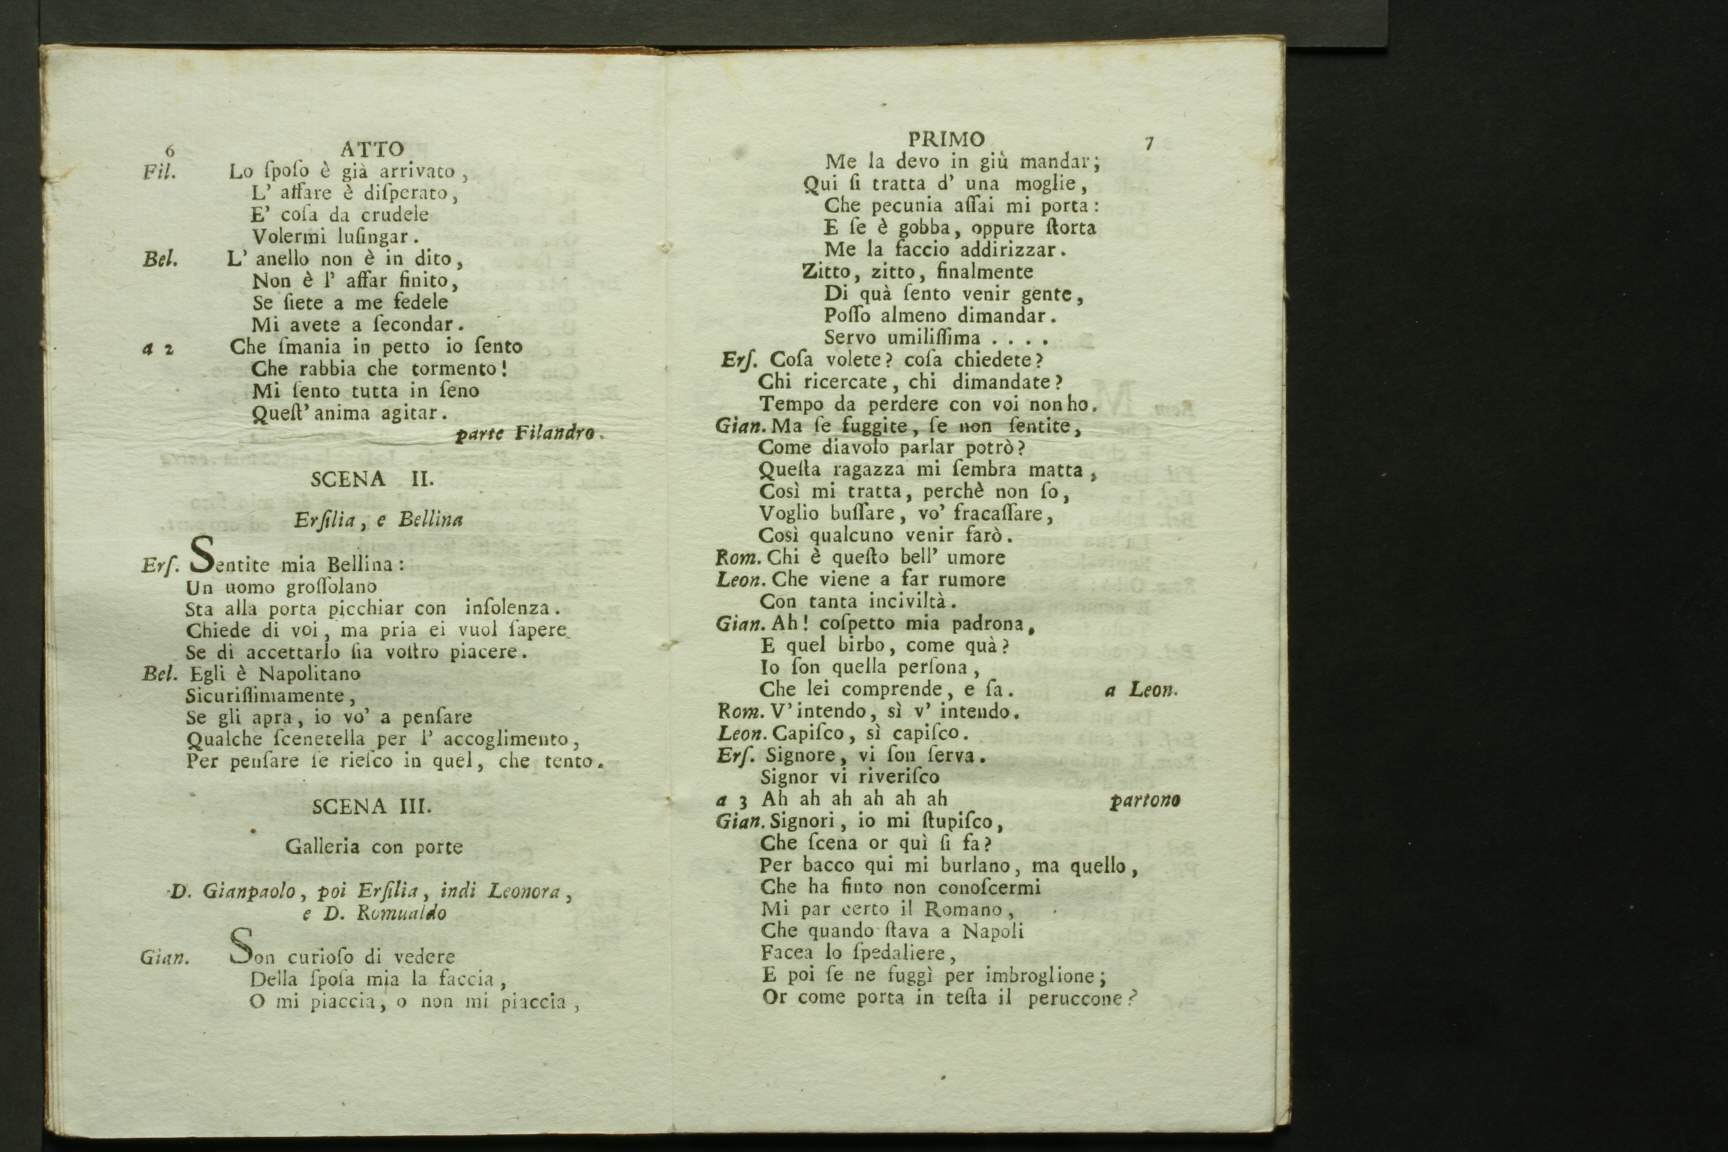 6 ATTO
Fil. Lo ſpoſo è già arrivato,
L' affare è diſperato,
E' coſa da crudele
Volermi luſingar.
Bel. L' anello non è in dito,
Non è l' affar finito,
Se ſiete a me fedele
Mi avete a ſecondar.
a 2 Che ſmania in petto io ſento
Che rabbia che tormento!
Mi ſento tutta in ſeno
Queſt' anima agitar.
parte Filandro.
SCENA II.
Erſilia, e Bellina
Erſ. Sentite mia Bellina:
Un uomo groſſolano
Sta alla porta picchiar con inſolenza.
Chiede di voi, ma pria ei vuol ſapere
Se di accettarlo ſia voſtro piacere.
Bel. Egli è Napolitano
Sicuriſſimamente,
Se gli apra, io vo' a penſare
Qualche ſcenetella per l' accoglimento,
Per penſare ſe rieſco in quel, che tento.
SCENA III.
Galleria con porte
D. Gianpaolo, poi Erſilia, indi Leonora,
e D. Romualdo
Gian. Son curioſo di vedere
Della ſpoſa mia la faccia,
O mi piaccia, o non mi piaccia,
PRIMO 7
Me la devo in giù mandar;
Qui ſi tratta d' una moglie,
Che pecunia aſſai mi porta:
E ſe è gobba, oppure ſtorta
Me la faccio addirizzar.
Zitto, zitto, finalmente
Di quà ſento venir gente,
Poſſo almeno dimandar.
Servo umiliſſima . . . .
Erſ. Coſa volete? coſa chiedete?
Chi ricercate, chi dimandate?
Tempo da perdere con voi non ho.
Gian. Ma ſe fuggite, ſe non ſentite,
Come diavolo parlar potrò?
Queſta ragazza mi ſembra matta,
Così mi tratta, perchè non ſo,
Voglio buſſare, vo' fracaſſare,
Così qualcuno venir farò.
Rom. Chi è queſto bell' umore
Leon. Che viene a far rumore
Con tanta inciviltà.
Gian. Ah! coſpetto mia padrona,
E quel birbo, come quà?
Io ſon quella perſona,
Che lei comprende, e ſa. a Leon.
Rom. V' intendo, sì v' intendo.
Leon. Capiſco, sì capiſco.
Erſ. Signore, vi ſon ſerva.
Signor vi riveriſco
a 3 Ah ah ah ah ah ah partono
Gian. Signori, io mi ſtupiſco,
Che ſcena or quì ſi fa?
Per bacco qui mi burlano, ma quello,
Che ha finto non conoſcermi
Mi par certo il Romano,
Che quando ſtava a Napoli
Facea lo ſpedaliere,
E poi ſe ne fuggì per imbroglione;
Or come porta in teſta il peruccone?